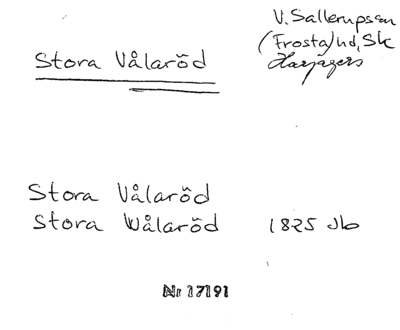 Stora Vålaröd
V. Sallerupssn
(Frosta)hd, Sk
Harjagers
Stora Vålaröd
Stora Wålaröd 1825 Jb
Nr 17191